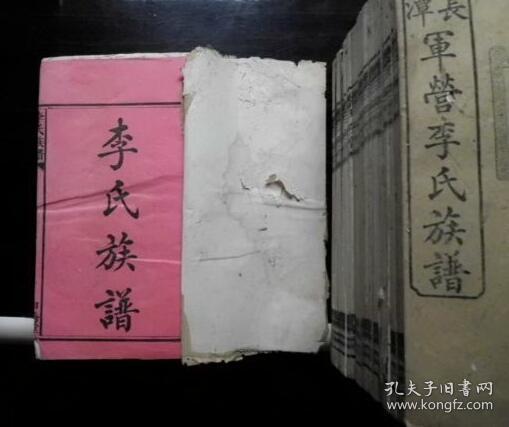 長潭
軍營李氏族譜
李氏族譜
李氏族譜
孔夫子旧书网
www.kongfz.com